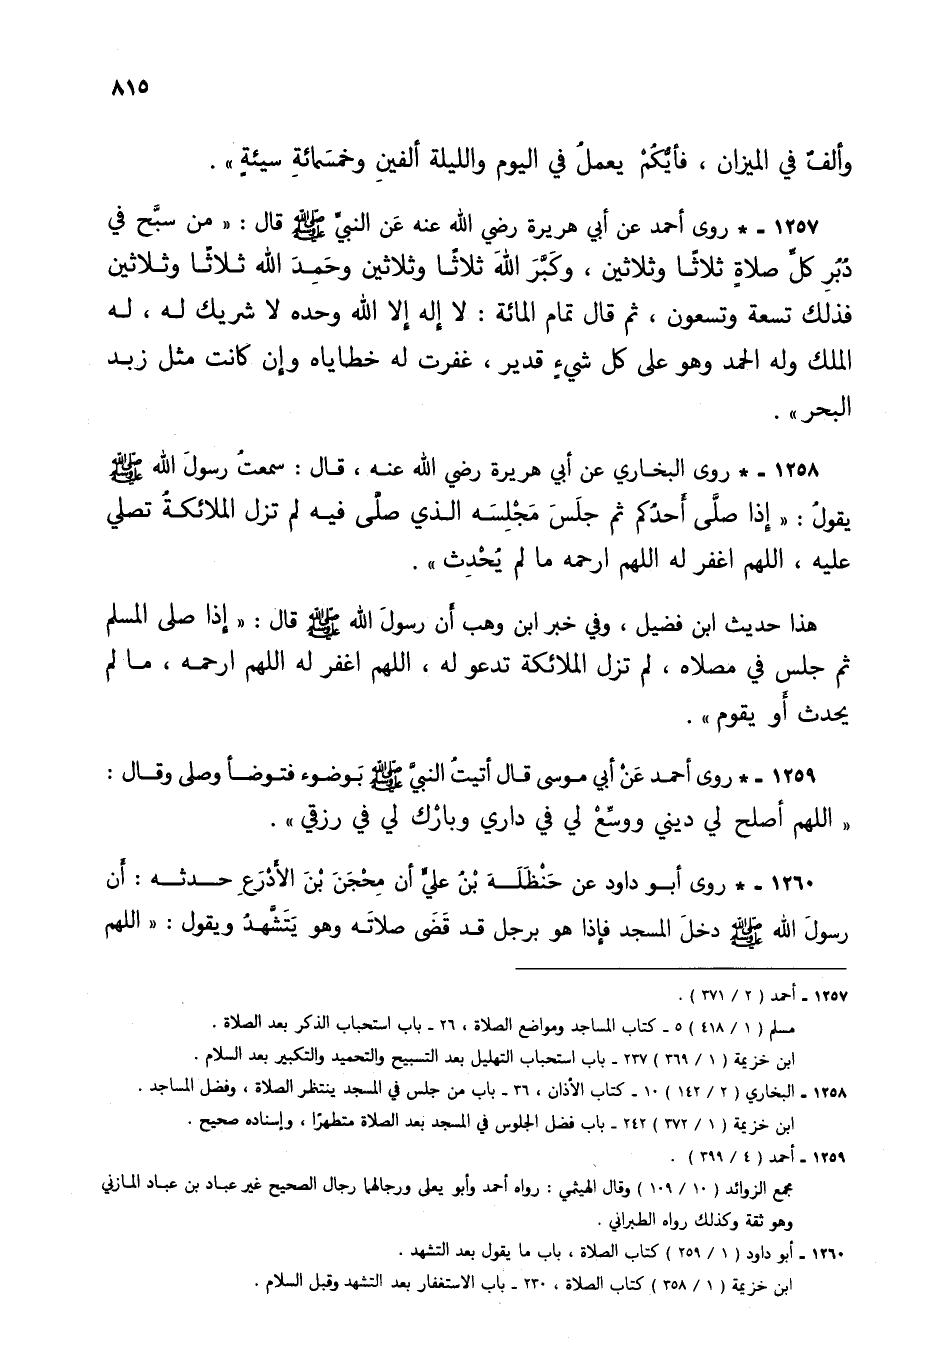 ٨١٥
وألفٌ في الميزان ، فأيُّكُمْ يعملُ في اليوم والليلة ألفينِ وخمسَمائةِ سيئةٍ» .
١٢٥٧ - * روى أحمد عن أبي هريرة رضي الله عنه عَن النبيِّ ﷺ قال : « من سبَّح في
دُبُرِ كلِّ صلاةٍ ثلاثًا وثلاثين ، وكَبَّرَ اللهَ ثلاثًا وثلاثين وحَمِدَ الله ثلاثًا وثلاثين
فذلك تسعة وتسعون ، ثم قال تمام المائة : لا إله إلا الله وحده لا شريك له ، له
الملك وله الحمد وهو على كل شيءٍ قدير ، غفرت له خطاياه وإن كانت مثل زبد
البحر» .
١٢٥٨ - * روى البخاري عن أبي هريرة رضي الله عنه ، قال : سمعتُ رسولَ الله ﷺ
يقولُ : « إذا صلَّى أَحدُكم ثم جلَسَ مَجْلِسَه الذي صلَّى فيه لم تزل الملائكةُ تصلي
عليه ، اللهم اغفر له اللهم ارحمه ما لم يُحْدِث » .
هذا حديث ابن فضيل ، وفي خبر ابن وهب أن رسولَ الله ﷺ قال : « إذا صلى المسلم
ثم جلس في مصلاه ، لم تزل الملائكة تدعو له ، اللهم اغفر له اللهم ارحمه ، ما لم
يحدث أو يقوم » .
١٢٥٩ - * روى أحمد عَنْ أبي موسى قال أتيتُ النبيَّ ﷺ بَوضوء فتوضأ وصلى وقال :
« اللهم أصلح لي ديني ووسِّعْ لي في داري وبارْك لي في رزقي» .
١٢٦٠ - * روى أبو داود عن حَنْظَلَة بْنُ عليٍّ أن مِحْجَنَ بْنَ الأَدْرَعِ حدثه : أَن
رسولَ الله ﷺ دخلَ المسجد فإذا هو برجل قد قَضَى صلاتَه وهو يَتَشَّهدُ ويقول : « اللهم
١٢٥٧ - أحمد ( ٢ / ٣٧١ ) .
مسلم ( ١ / ٤١٨ ) ٥ - كتاب المساجد ومواضع الصلاة ، ٢٦ - باب استحباب الذكر بعد الصلاة .
ابن خزيمة ( ١ / ٣٦٩ ) ٢٣٧ - باب استحباب التهليل بعد التسبيح والتحميد والتكبير بعد السلام .
١٢٥٨ - البخاري ( ٢ / ١٤٢ ) ١٠ - كتاب الأذان ، ٣٦ - باب من جلس في المسجد ينتظر الصلاة ، وفضل المساجد .
ابن خزيمة ( ١ / ٣٧٢ ) ٢٤٢ - باب فضل الجلوس في المسجد بعد الصلاة متطهرًا ، وإسناده صحيح .
١٢٥٩ - أحمد ( ٤ / ٣٩٩ ) .
مجمع الزوائد ( ١٠ / ١٠٩ ) وقال الهيثمي : رواه أحمد وأبو يعلى ورجالهما رجال الصحيح غير عباد بن عباد المازني
وهو ثقة وكذلك رواه الطبراني .
١٢٦٠ - أبو داود ( ١ / ٢٥٩ ) كتاب الصلاة ، باب ما يقول بعد التشهد .
ابن خزيمة ( ١ / ٣٥٨ ) كتاب الصلاة ، ٢٣٠ - باب الاستغفار بعد التشهد وقبل السلام .